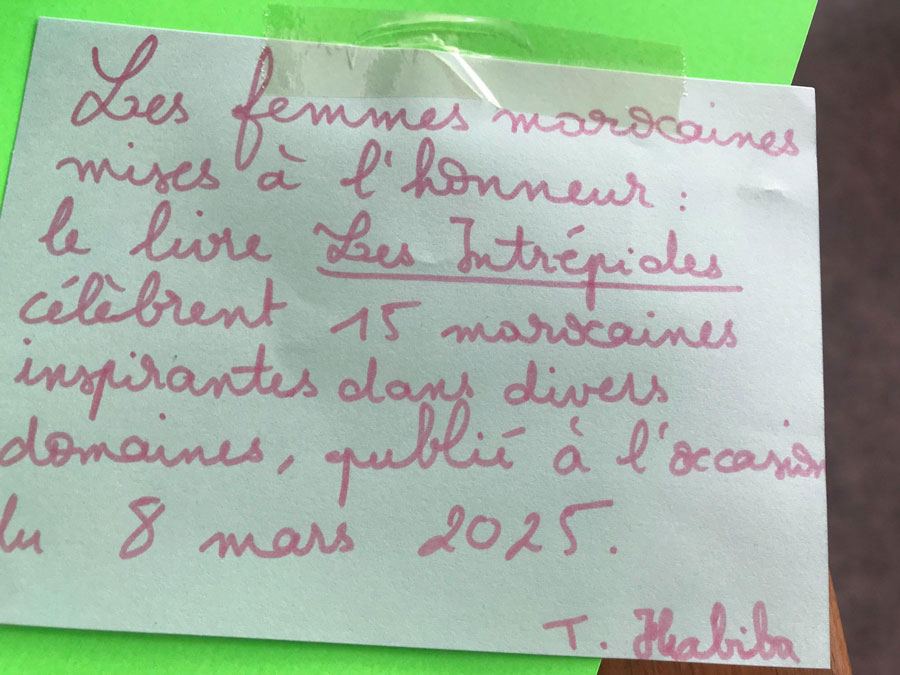 Les femmes marocaines
mises à l'honneur :
le livre Les Intrépides
célèbrent 15 marocaines
inspirantes dans divers
domaines, publié à l'occasion
du 8 mars 2025.
T. Habiba